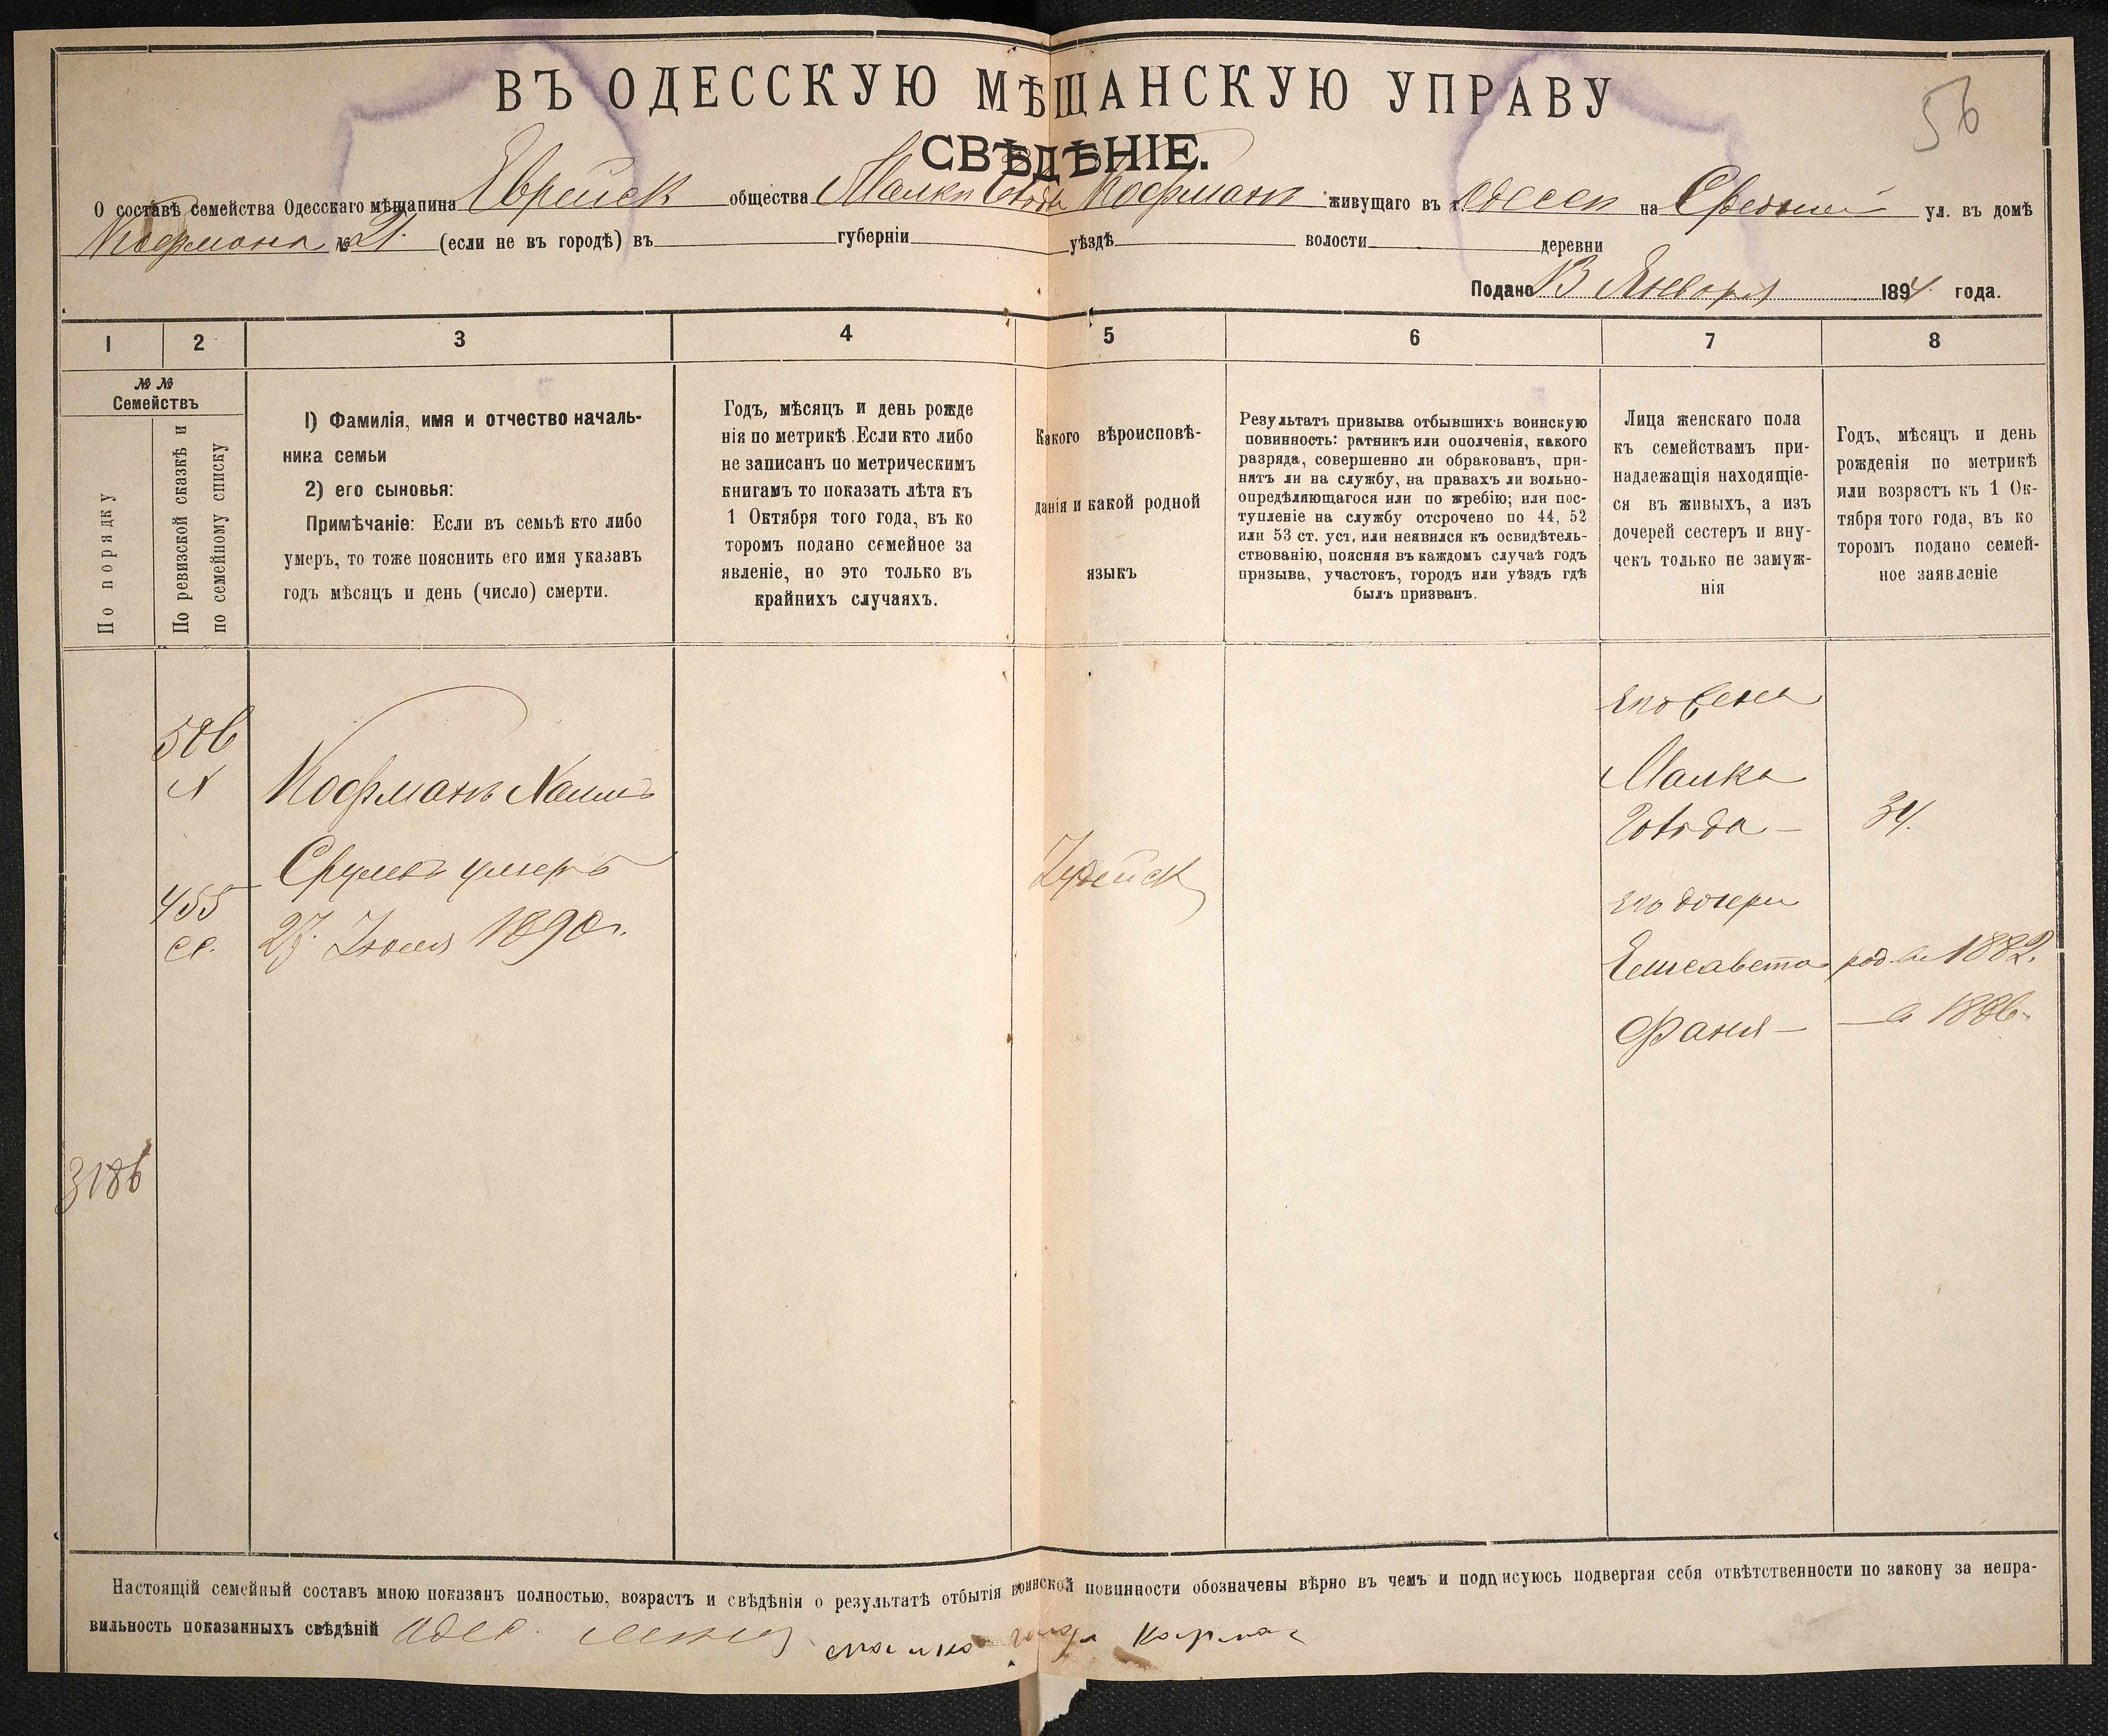 ВЪ ОДЕССКУЮ МѢЩАНСКУЮ УПРАВУ
56
СВѢДѢНІЕ.
О составѣ семейства Одесскаго мѣщанина Еврейск общества Малки Кофманъ живущаго въ г. Одессѣ на Средней ул. въ домѣ
Кофмана № 21. (если не въ городѣ) въ губерніи уѣздѣ волости деревни
Подано 13 Января 1894 года.
1 2 3 4 5 6 7 8
№ № Семействъ
По порядку
По ревизской сказкѣ и
по семейному списку
1) Фамилія, имя и отчество началь-
ника семьи
2) его сыновья:
Примѣчаніе: Если въ семьѣ кто либо
умеръ, то тоже пояснить его имя указавъ
годъ мѣсяцъ и день (число) смерти.
Годъ, мѣсяцъ и день рожде
нія по метрикѣ. Если кто либо
не записанъ по метрическимъ
книгамъ то показать лѣта къ
1 Октября того года, въ ко
торомъ подано семейное за
явленіе, но это только въ
крайнихъ случаяхъ.
Какого вѣроисповѣ-
данія и какой родной
языкъ
Результатъ призыва отбывшихъ воинскую
повинность: ратникъ или ополченія, какого
разряда, совершенно ли обракованъ, при-
нятъ ли на службу, на правахъ ли вольно-
опредѣляющагося или по жребію; или пос-
тупленіе на службу отсрочено по 44, 52
или 53 ст. уст, или неявился къ освидѣтель-
ствованію, поясняя въ каждомъ случаѣ годъ
призыва, участокъ, городъ или уѣздъ гдѣ
былъ призванъ.
Лица женскаго пола
къ семействамъ при-
надлежащія находящіе-
ся въ живыхъ, а изъ
дочерей сестеръ и вну-
чекъ только не замуж-
нія
Годъ, мѣсяцъ и день
рожденія по метрикѣ
или возрастъ къ 1 Ок-
тября того года, въ ко
торомъ подано семей-
ное заявленіе
его жена
586
Кофманъ Хаимъ
Малка
34.
Срулевъ умеръ
Іудейск
455
его дочери
27. Іюля 1890 г.
Елисавета род. въ 1882.
Фаня — — в 1886.
3186
Настоящій семейный составъ мною показанъ полностью, возрастъ и свѣдѣнія о результатѣ отбытія воинской повинности обозначены вѣрно въ чемъ и подписуюсь подвергая себя отвѣтственности по закону за непра-
вильность показанныхъ свѣдѣній Одес. малка Кофман